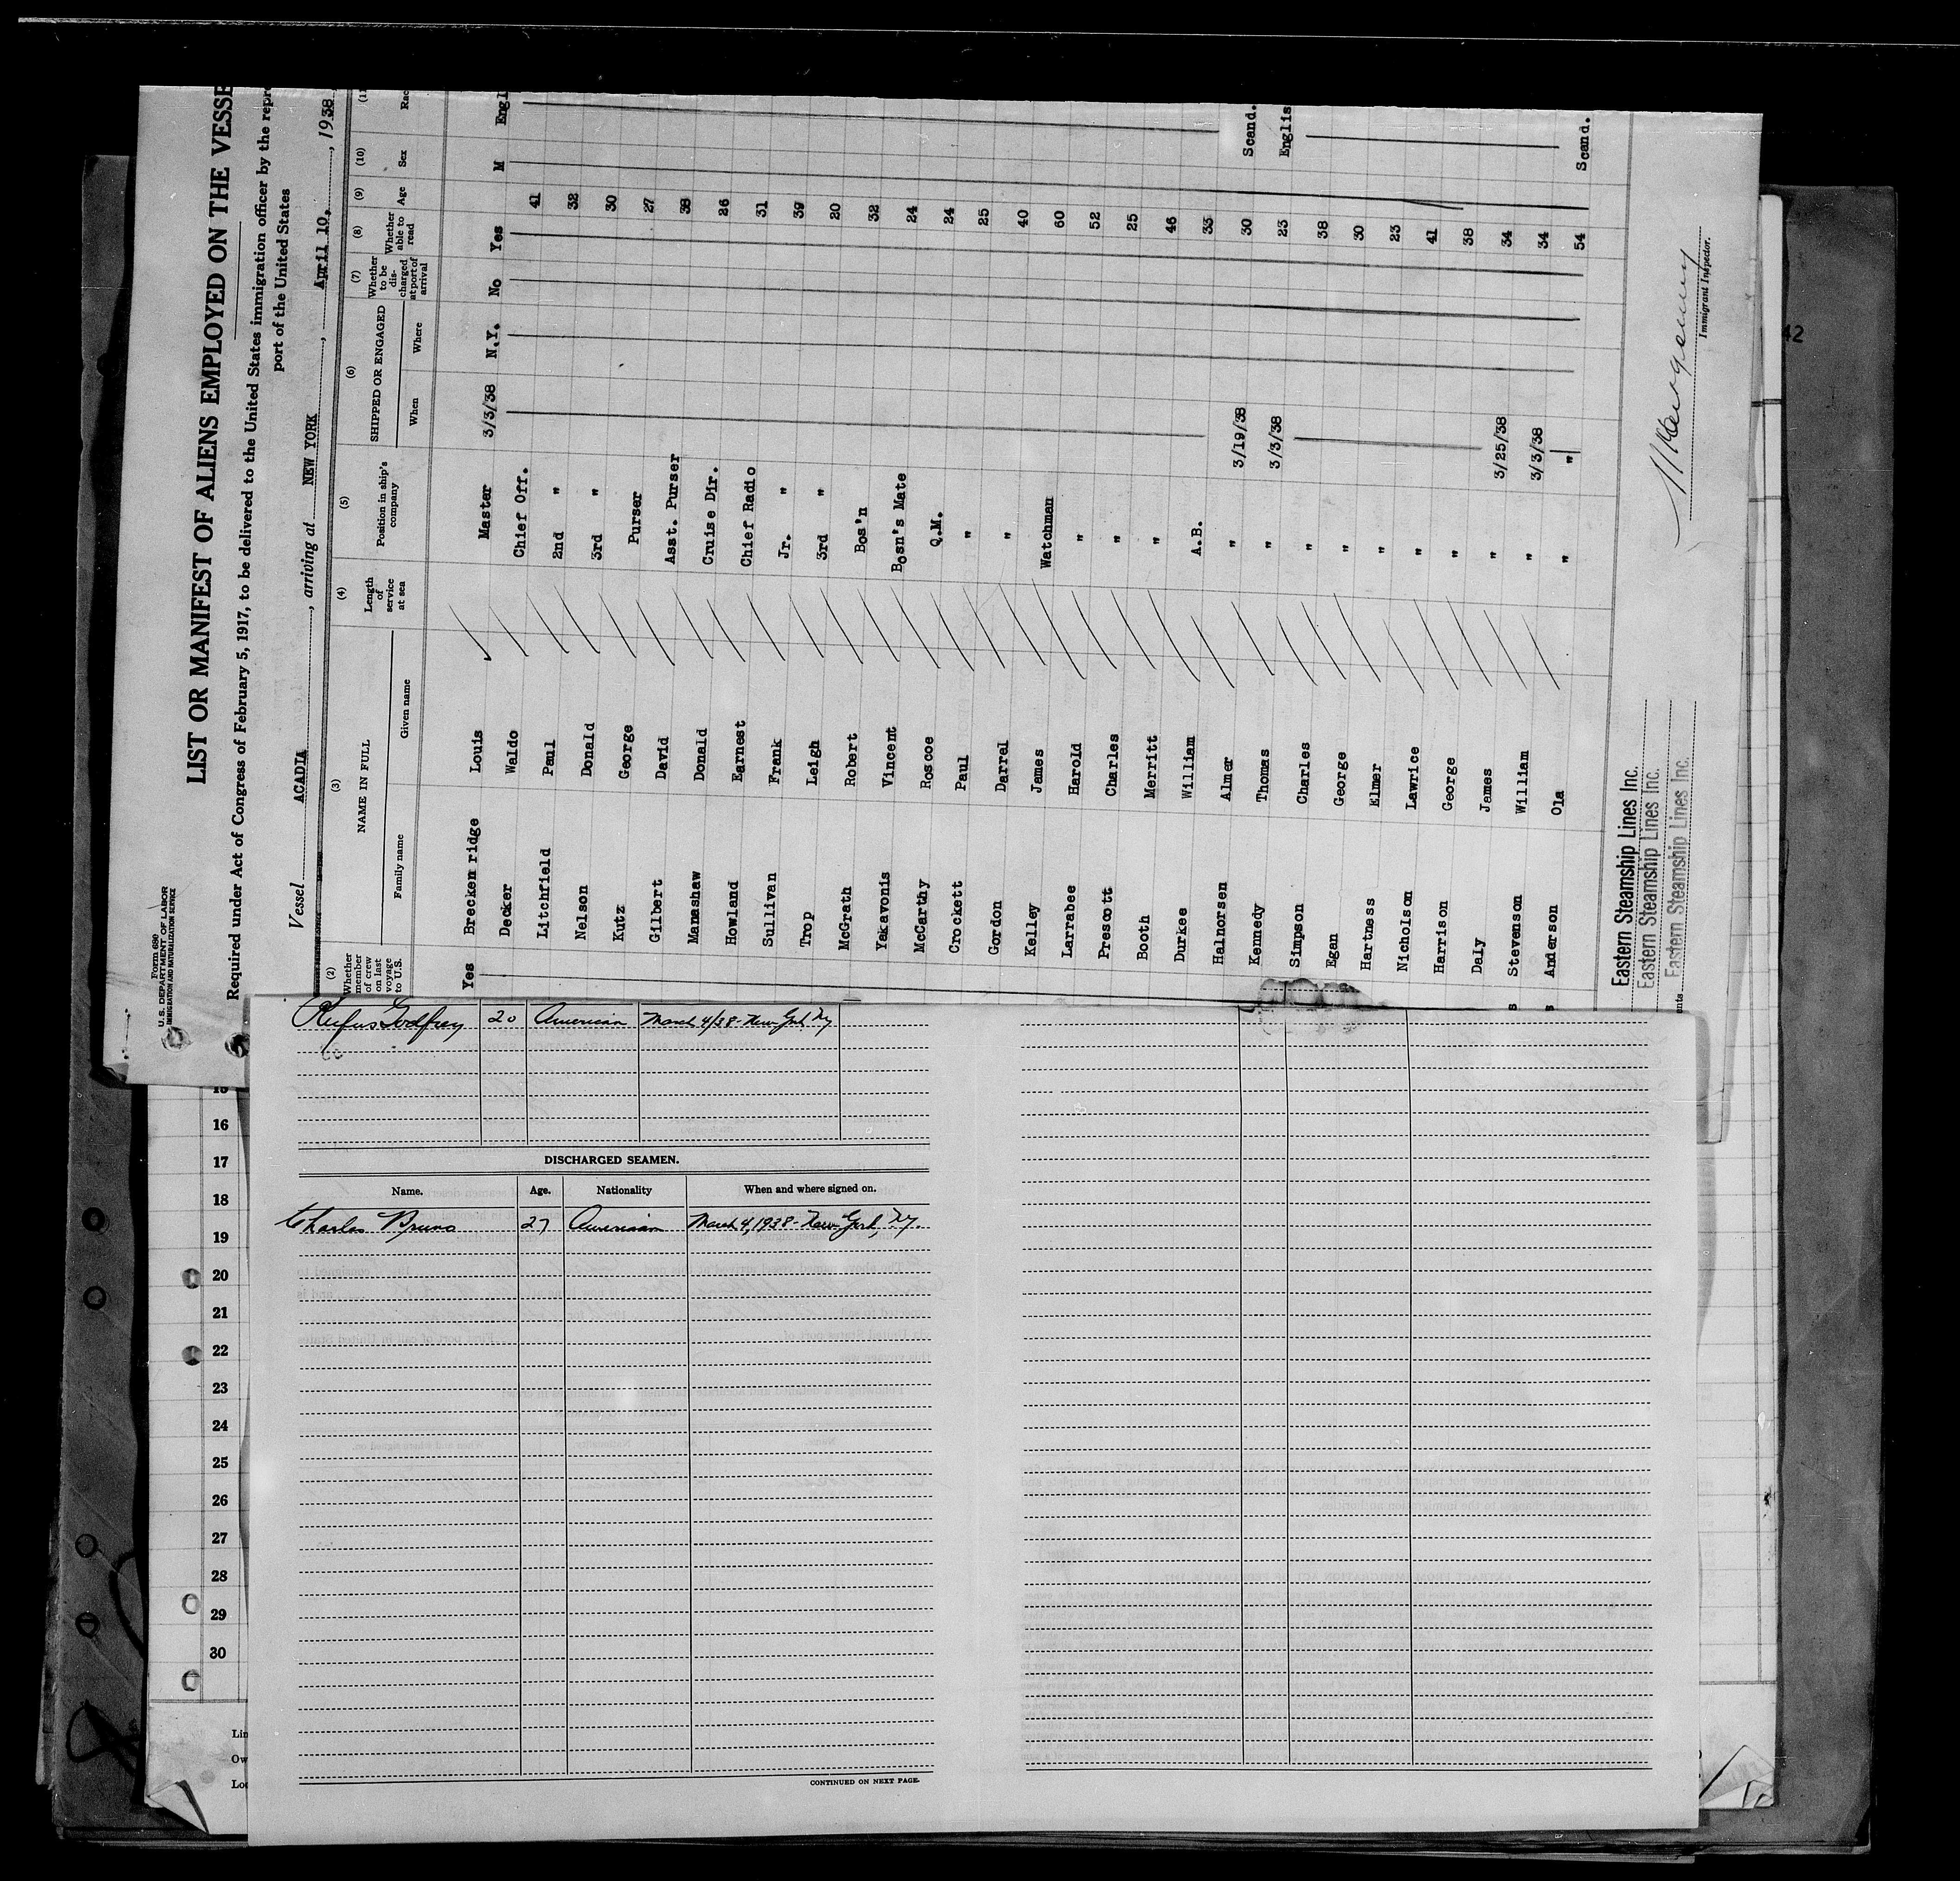 Form 680
U. S. DEPARTMENT OF LABOR
IMMIGRATION AND NATURALIZATION SERVICE
LIST OR MANIFEST OF ALIENS EMPLOYED ON THE VESSE
Required under Act of Congress of February 5, 1917, to be delivered to the United States immigration officer by the repre
port of the United States
Vessel ACADIA, arriving at NEW YORK, April 10, 1938
(2) (3) (4) (5) (6) (7) (8) (9) (10) (11
Whether member of crew on last voyage to U.S. NAME IN FULL Family name Given name Length of service at sea Position in ship's company SHIPPED OR ENGAGED When Where Whether to be discharged at port of arrival Whether able to read Age Sex Rac
Yes Breckenridge Louis Master 3/3/38 N.Y. No Yes M Engl
Decker Waldo Chief Off. 41
Litchfield Paul 2nd " 32
Nelson Donald 3rd " 30
Kutz George Purser 27
Gilbert David Asst. Purser 38
Manashaw Donald Cruise Dir. 26
Howland Earnest Chief Radio 31
Sullivan Frank Jr. " 39
Trop Leigh 3rd " 20
McGrath Robert Bos'n 32
Yakavonis Vincent Bosn's Mate 24
McCarthy Roscoe Q.M. 24
Crockett Paul " 25
Gordon Darrel " 40
Kelley James Watchman 60
Larrabee Harold " 52
Prescott Charles " 25
Booth Merritt " 46
Durkee William A.B. 33
Halnorsen Almer " 3/19/38 30 Scand.
Kennedy Thomas " 3/3/38 23 Englis
Simpson Charles " 38
Egan George " 30
Hartness Elmer " 23
Nicholson Lawrice " 41
Harrison George " 38
Daly James " 3/25/38 34
Stevenson William " 3/3/38 34
Anderson Ola " " 54 Scand.
Eastern Steamship Lines Inc.
Eastern Steamship Lines Inc.
Eastern Steamship Lines Inc.
Immigrant Inspector.
42
Rufus Godfrey 20 American March 4/38 - New York Ny
DISCHARGED SEAMEN.
Name. Age. Nationality When and where signed on.
Charles Bruno 27 American March 4, 1938 - New York, Ny.
CONTINUED ON NEXT PAGE.
15
16
17
18
19
20
21
22
23
24
25
26
27
28
29
30
Lin
Ow
Loc